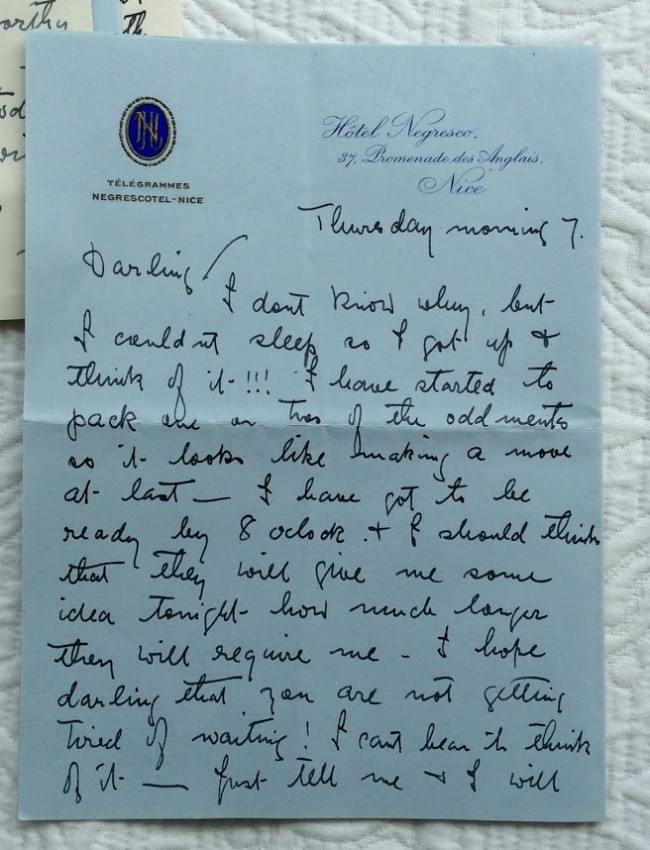 orthy
th.
N
TÉLÉGRAMMES
NEGRESCOTEL-NICE
Hôtel Negresco.
37, Promenade des Anglais.
Nice
Thursday morning 7.
Darling/
I dont know why, but
I couldnt sleep so I got up +
think of it-!!! I have started to
pack one or two of the oddments
so it looks like making a move
at last — I have got to be
ready by 8 oclock. + I should think
that they will give me some
idea tonight how much longer
they will require me - I hope
darling that you are not getting
tired of waiting! I cant bear to think
of it — Just tell me + I will